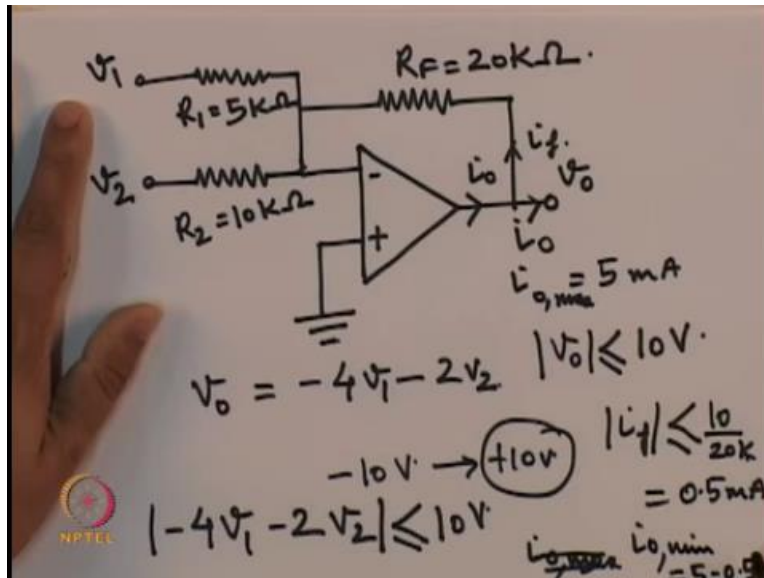 v₁
R₁ = 5KΩ
R_F = 20KΩ.
v₂
R₂ = 10KΩ
-
+
i₀
i_f.
v₀
i₀
i₀,max = 5 mA
v₀ = -4v₁ - 2v₂
|v₀| ≤ 10V.
-10V. → +10V
|i_f| ≤ 10/20K
= 0.5mA
|-4v₁ - 2v₂| ≤ 10V.
i₀,min
NPTEL